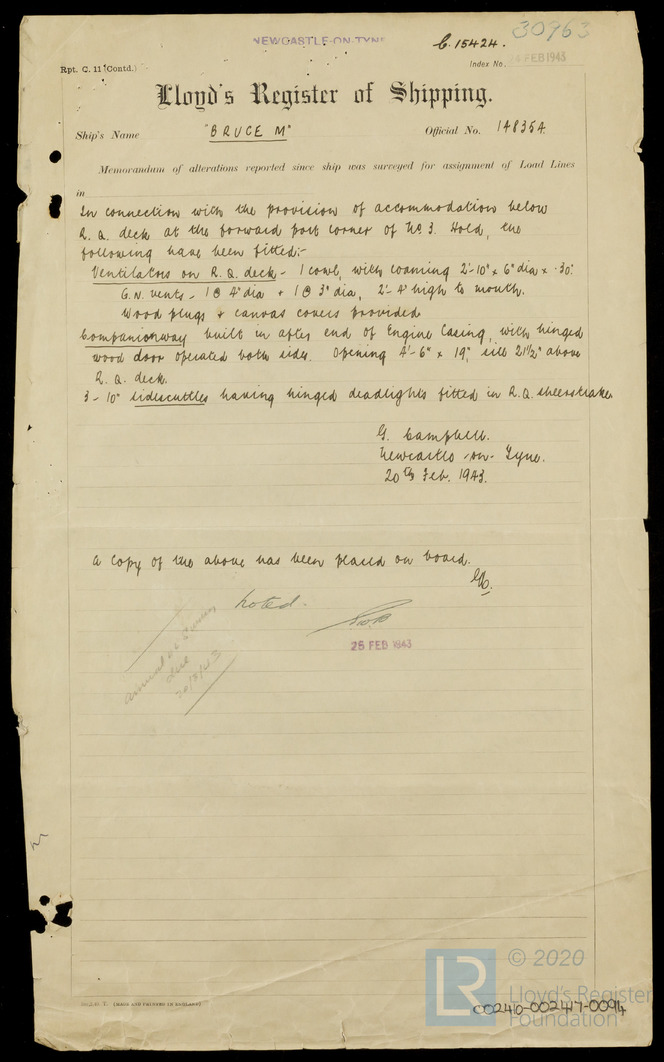 30963
NEWCASTLE-ON-TYNE
C. 15424.
Rpt. C. 11 (Contd.)
Index No. FEB 1943
Lloyd's Register of Shipping.
Ship's Name "BRUCE M" Official No. 148354
Memorandum of alterations reported since ship was surveyed for assignment of Load Lines
in
In connection with the provision of accommodation below
R.Q. deck at the forward port corner of No 3. Hold, the
following have been fitted:-
Ventilators on R.Q. deck - 1 cowl, with coaming 2'-10" x 6" dia x .30".
G.N. vents - 1 @ 4" dia + 1 @ 3" dia, 2'-4" high to mouth.
Wood plugs + canvas covers provided
Companionway built in after end of Engine Casing, with hinged
wood door operated both sides. Opening 4'-6" x 19", sill 21½" above
R.Q. deck.
3 - 10" sidescuttles having hinged deadlights fitted in R.Q. sheerstrake
G. Campbell.
Newcastle-on-Tyne.
20th Feb. 1943.
A copy of the above has been placed on board.
GC.
Noted.
25 FEB 1943
Annual
due
20/8/43
(MADE AND PRINTED IN ENGLAND)
LR
© 2020
Lloyd's Register
Foundation
002410-002417-0094